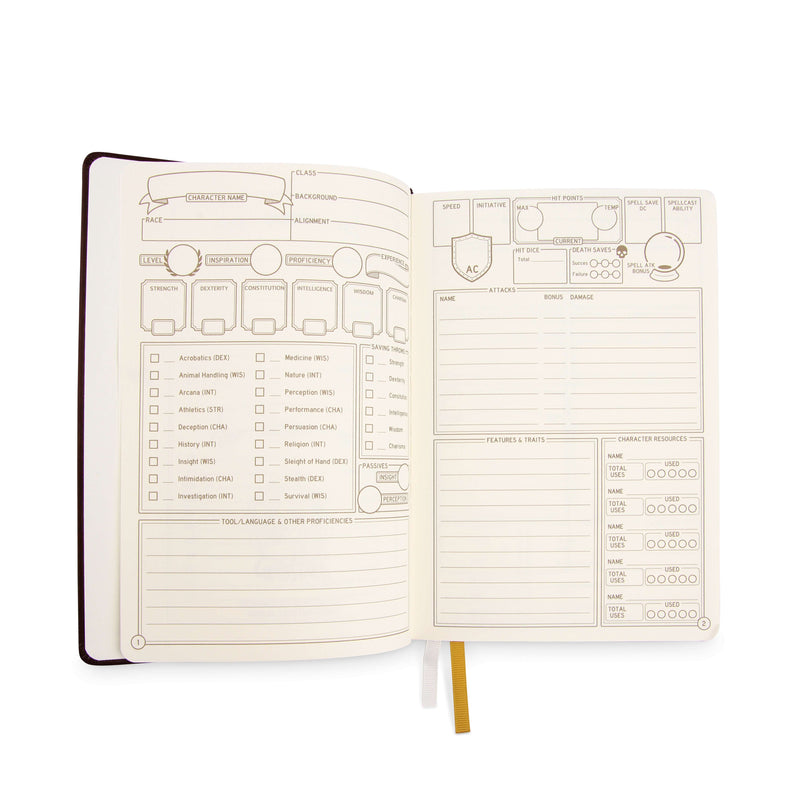 CLASS
CHARACTER NAME
BACKGROUND
RACE
ALIGNMENT
LEVEL
INSPIRATION
PROFICIENCY
STRENGTH
DEXTERITY
CONSTITUTION
INTELLIGENCE
WISDOM
Acrobatics (DEX)
Animal Handling (WIS)
Arcana (INT)
Athletics (STR)
Deception (CHA)
History (INT)
Insight (WIS)
Intimidation (CHA)
Investigation (INT)
Medicine (WIS)
Nature (INT)
Perception (WIS)
Performance (CHA)
Persuasion (CHA)
Religion (INT)
Sleight of Hand (DEX)
Stealth (DEX)
Survival (WIS)
SAVING THROWS
Strength
Dexterity
Wisdom
Charisma
PASSIVES
INSIGHT
PERCEPTION
TOOL/LANGUAGE & OTHER PROFICIENCIES
1
SPEED
INITIATIVE
AC
HIT POINTS
MAX
TEMP
CURRENT
HIT DICE
Total
DEATH SAVES
Succes
Failure
SPELL SAVE
DC
SPELLCAST
ABILITY
SPELL ATK
BONUS
ATTACKS
NAME BONUS DAMAGE
FEATURES & TRAITS
CHARACTER RESOURCES
NAME
TOTAL
USES
USED
NAME
TOTAL
USES
USED
NAME
TOTAL
USES
USED
NAME
TOTAL
USES
USED
NAME
TOTAL
USES
USED
2